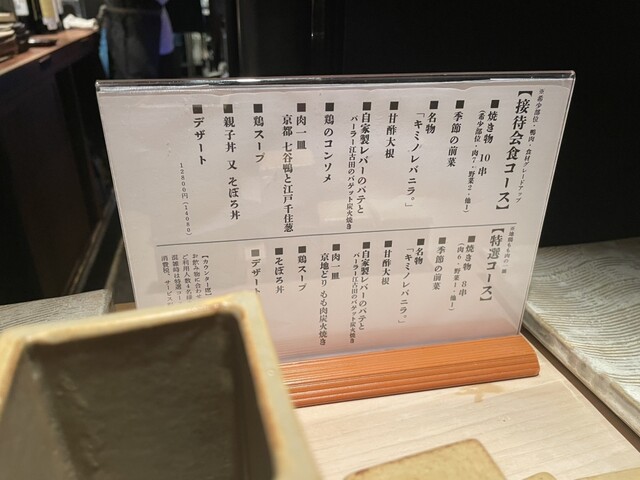 ※希少部位・鴨肉・食材グレードアップ
【接待会食コース】
■焼き物 10串
(希少部位・肉7・野菜2・他1)
■季節の前菜
■名物
「キミノレバニラ。」
■甘酢大根
■自家製レバーのパテと
パーラー江古田のバゲット炭火焼き
■鶏のコンソメ
■肉一皿
京都 七谷鴨と江戸千住葱
■鶏スープ
■親子丼 又 そぼろ丼
■デザート
12800円(14080)
【特選コース】
■焼き物 8串
(肉6・野菜1・他1)
■季節の前菜
■名物
「キミノレバニラ。」
■甘酢大根
■自家製レバーのパテと
パーラー江古田のバゲット炭火焼き
■肉一皿
京地どり もも肉炭火焼き
■鶏スープ
■そぼろ丼
■デザート
【カウンター席
お飲み物に合わせ
ご利用人数4名様
混雑時は特選コー
消費税、サービス